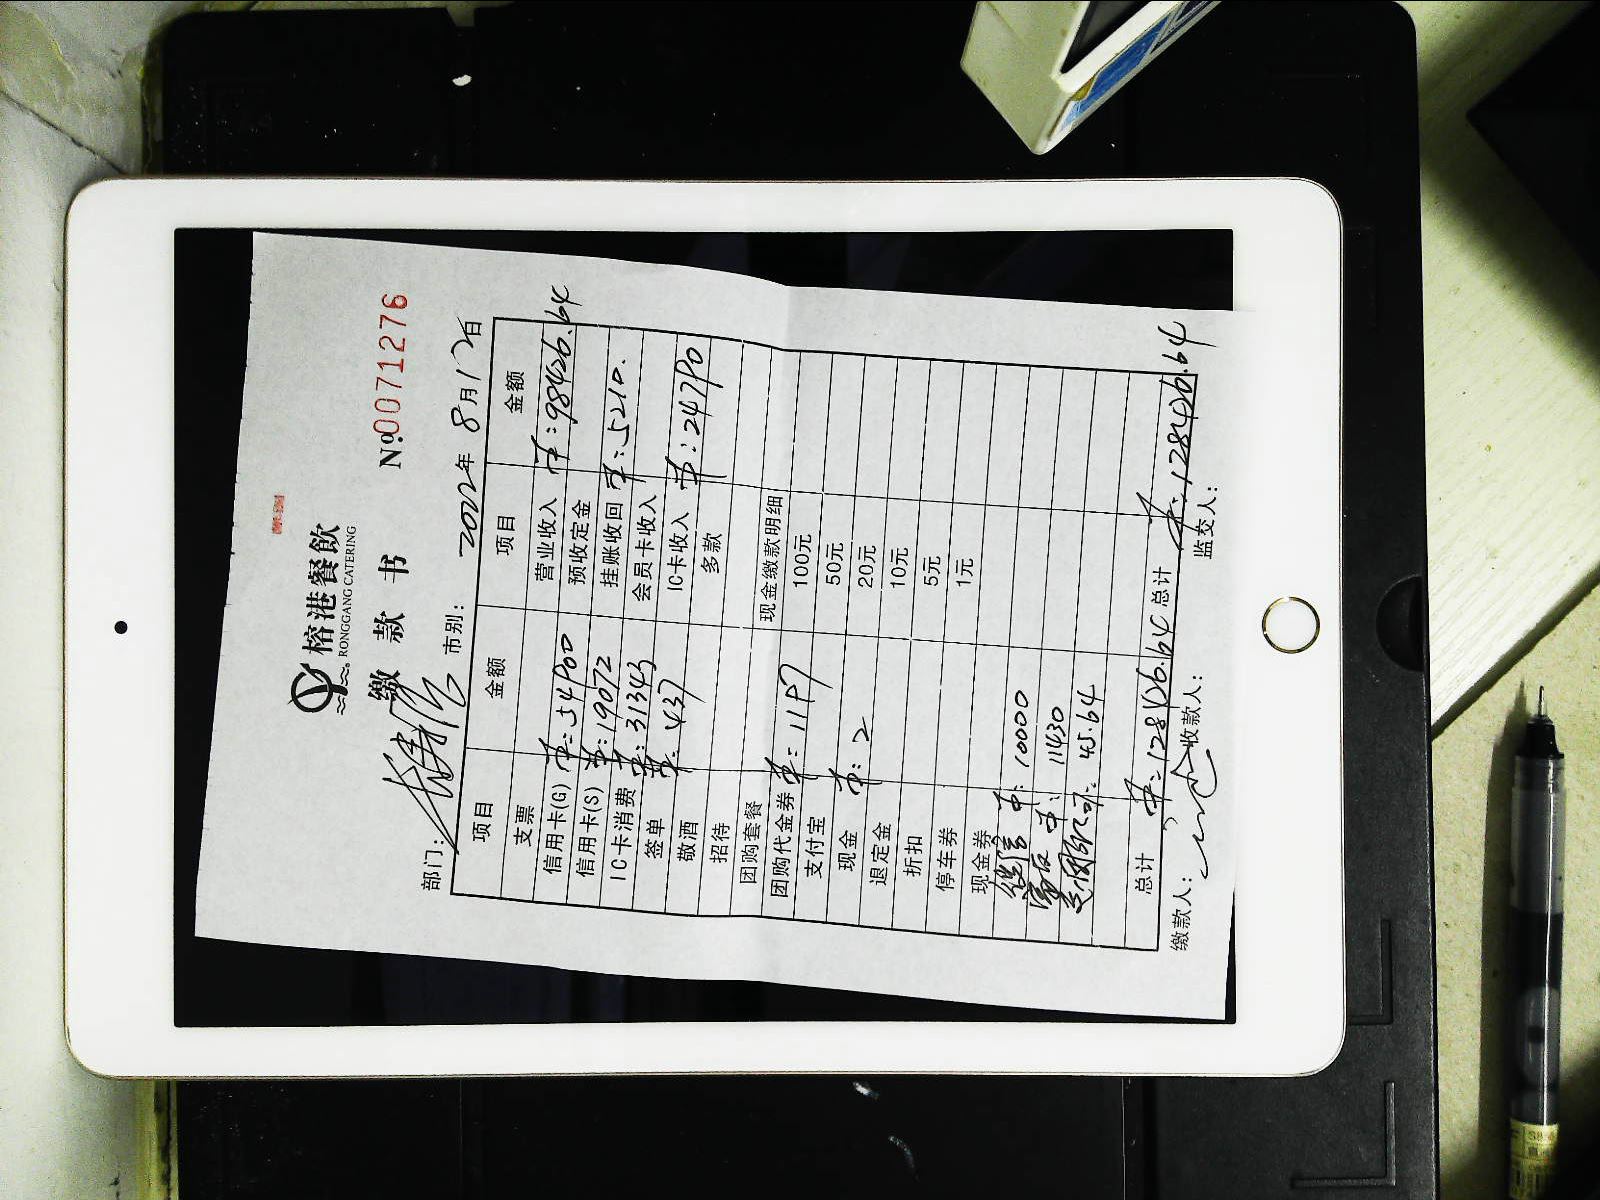 榕港餐飲
RONGGANG CATERING
缴 款 书 №0071276
部门: 市别: 2022年 8月17日
项目 金额 项目 金额
支票 营业收入 ¥:98426.64
信用卡(G) ¥:54900 预收定金
信用卡(S) ¥:19072 挂账收回 ¥:5210.
IC卡消费 ¥:31343 会员卡收入
签单 ¥:437 IC卡收入 ¥:24790
敬酒 多款
招待
团购套餐 现金缴款明细
团购代金券 ¥:1197 100元
支付宝 50元
现金 ¥:2 20元
退定金 10元
折扣 5元
停车券 1元
现金券
微信 ¥:10000
¥:11430
¥:45.64
总计 ¥:128426.64 总计 ¥:128426.64
缴款人: 收款人: 监交人: